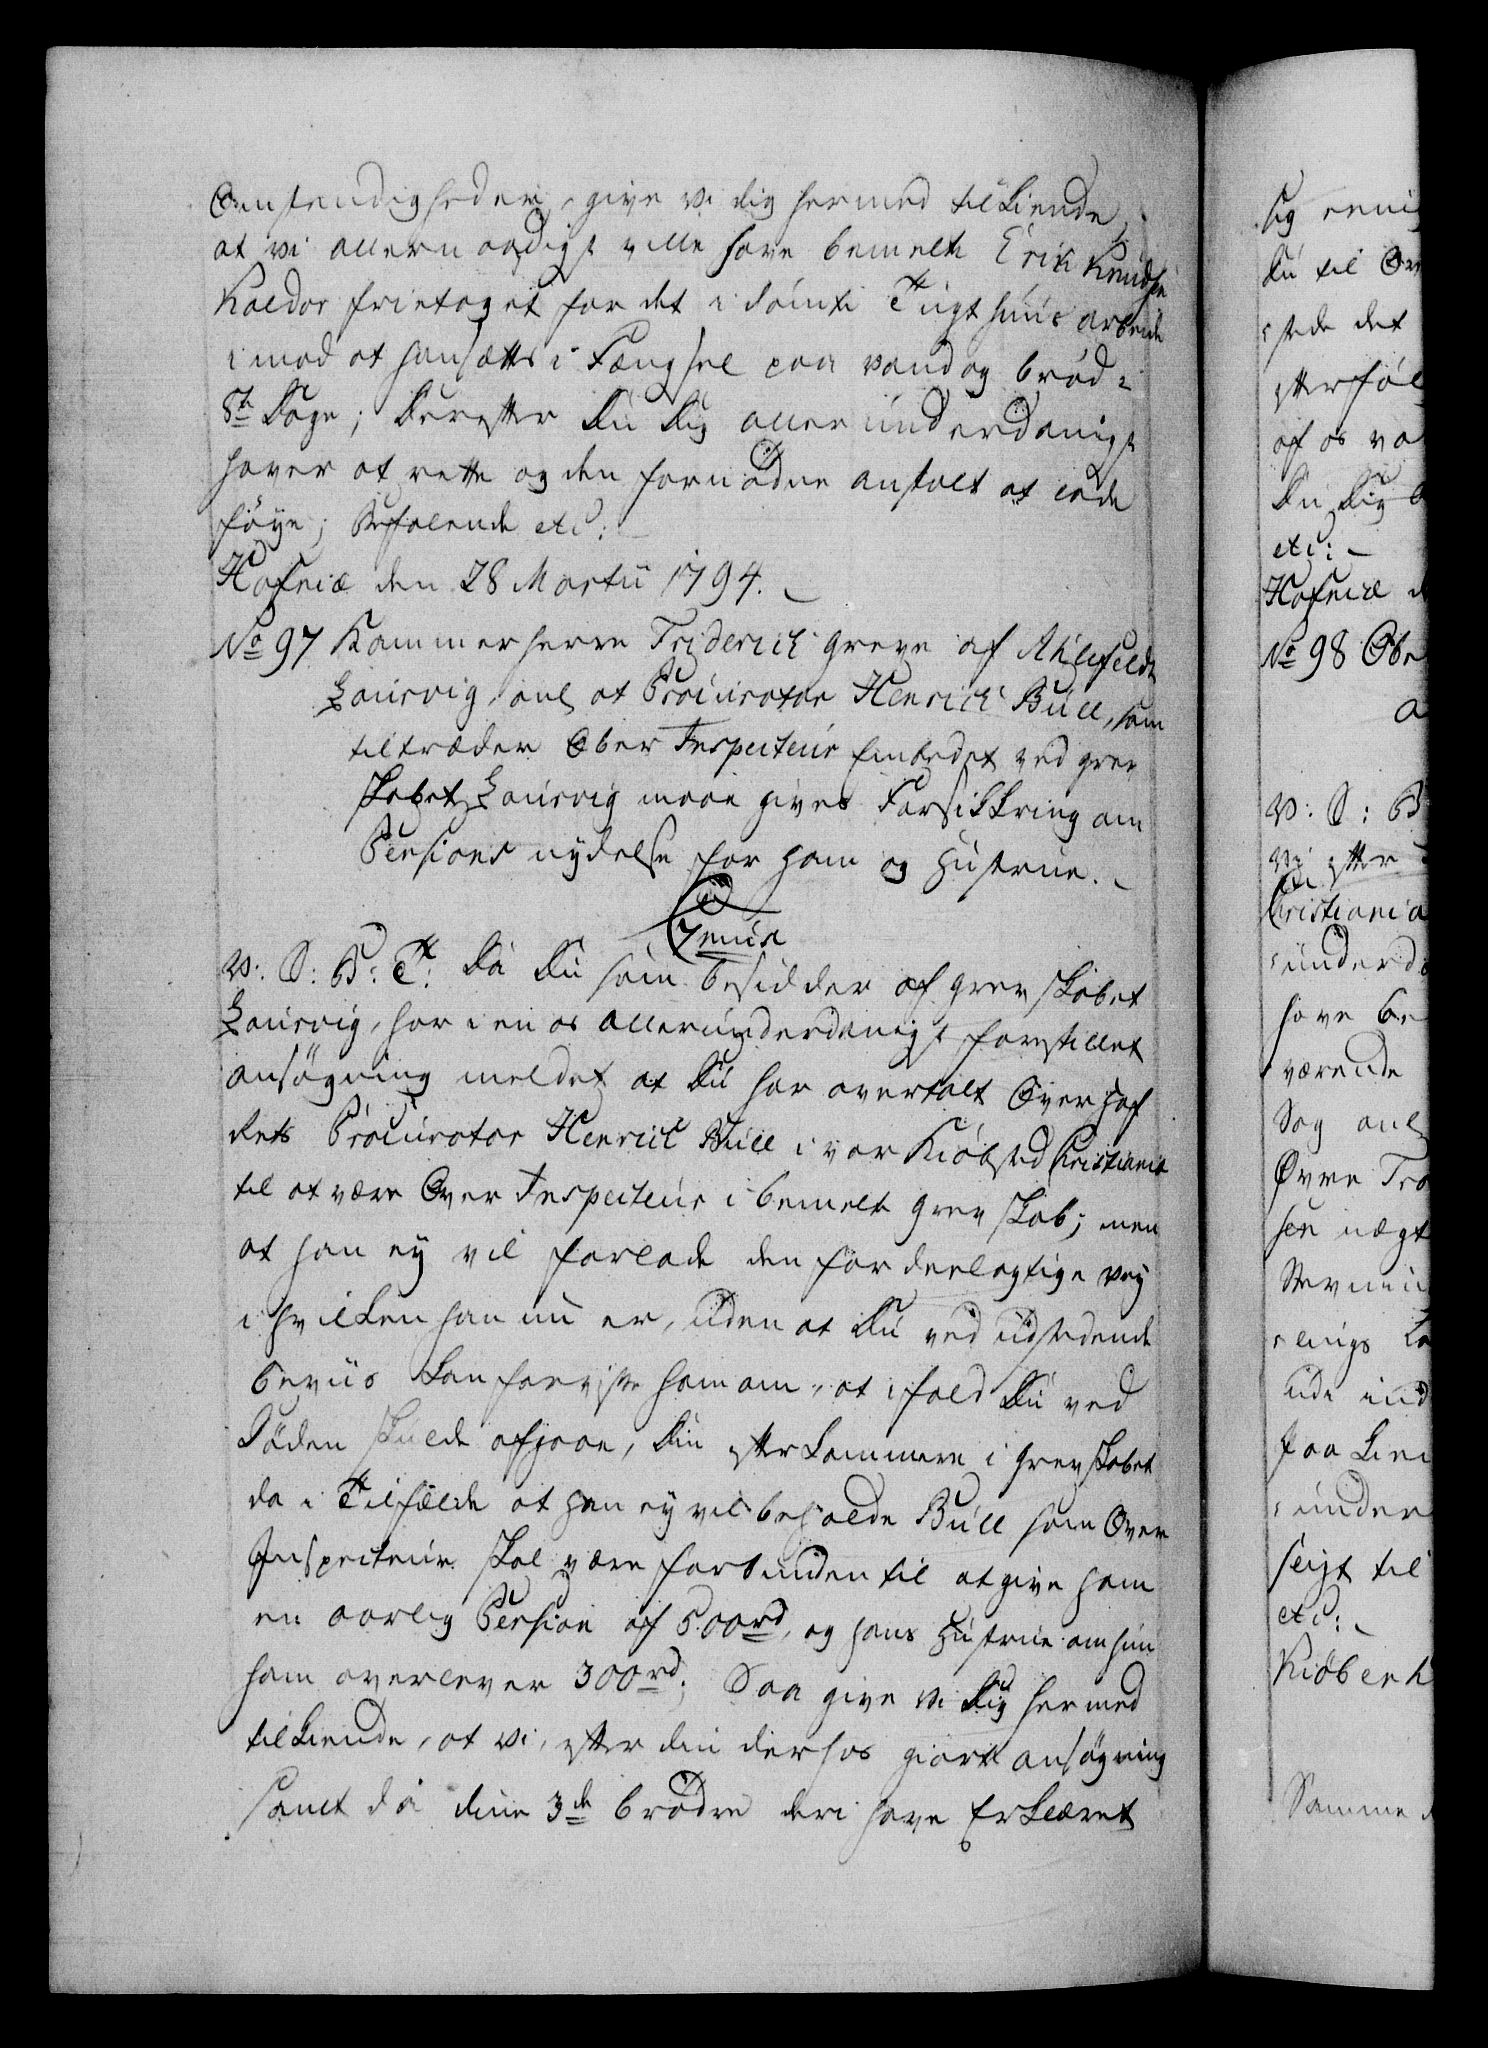 Omstendigheder, give vi dig hermed tilkiende,
at vi allernaadigst ville have bemelte Erik Knudsen
Kaldor fritaget for det idömte Tugthuus arbeide
imod at han sættes i Fængsel paa vand og bröd i
8te Dage; Derefter Du Dig allerunderdanigst
haver at rette og den fornödne anstalt at lade
föye; Befalende etc:
Hafniæ den 28 Martii 1794.
No 97 Kammerherre Friderich Greve af Ahlefeldt
Laurvig, anl at Procurator Henrich Bull, som
tiltræder Ober Inspecteur Embedet ved grev
skabet Laurvig maae gives Forsikkring om
Pensions nydelse for ham og Hustrue.
Genus
V: S: B: T: Da Du som besidder af grevskabet
Laurvig, har i en os allerunderdanigst forestillet
ansögning meldet at Du har overtalt Overhof
rets Procurator Henrich Bull i vor Kiöbsted Christiania
til at være Over Inspecteur i bemelte grevskab; men
at han ey vil forlade den fordeelagtige vey
i hvilken han nu er, uden at Du ved udstedende
beviis kan forvisse ham om, at ifald Du ved
Döden skulde afgaae, Din efterkommere i Grevskabet
da i Tilfælde at han ey vil beholde Bull som Over
Inspecteur skal være forbunden til at give ham
en aarlig Pension af 500rd, og hans Hustrue om hun
ham overlever 300rd; Saa give vi Dig hermed
tilkiende, at vi, efter din derhos giorte ansögning
samt da dine 3de brödre deri have Erklæret
Sig eenig
Du til
stede det
efterföl
af os va
Du Dig
etc:
Hafniæ
No 98 Obe
V: S: B
vi efter
Christiania
underd
have be
værende
Sag anl
Övre Tro
sen nægt
Stevnin
lings
ude ind
paa
under
seigt til
etc:
Kiöbenh
Samme